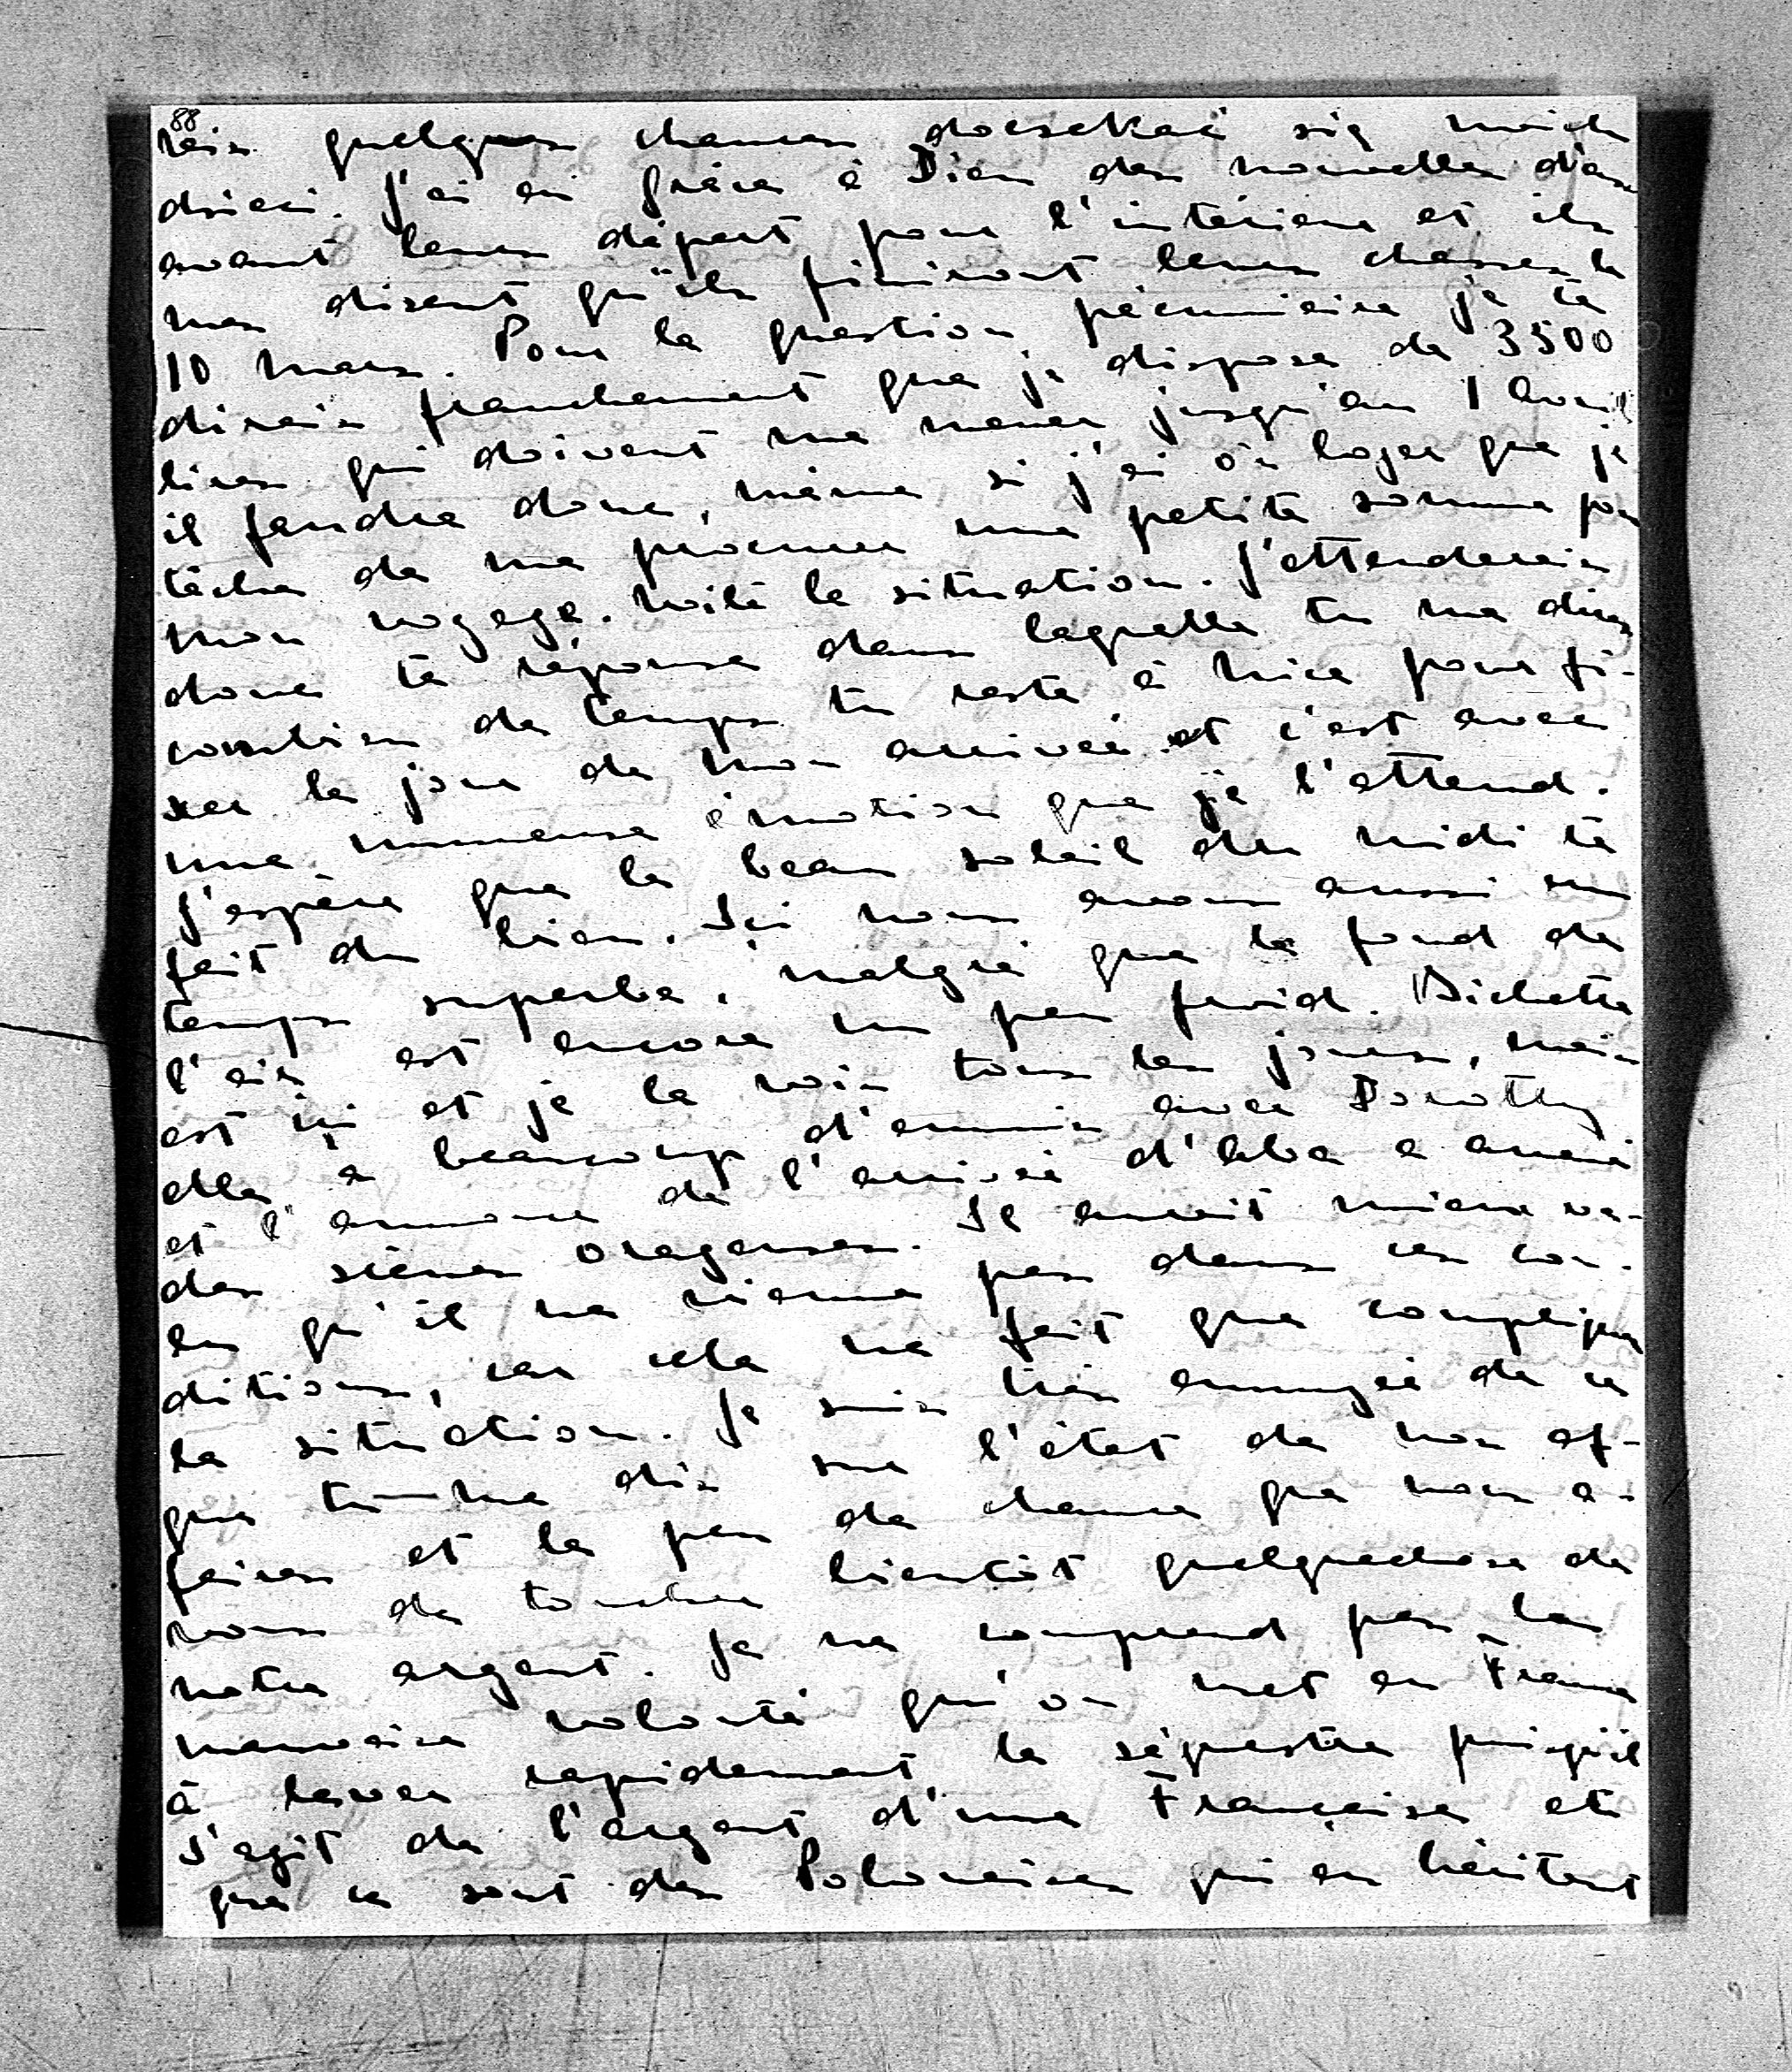 88
rais quelques chances doczekać się moich
dzieci. J'ai eu grâce à Dieu des nouvelles d'eux
avant leur départ pour l'intérieur et ils
me disent qu'ils finiront leurs chasses le
10 mars. Pour la question pécuniaire je te
dirais franchement que je dispose de 3500
lires qui doivent me mener jusqu'au 1 Avril
il faudra donc, même si j'ai où loger que je
tâche de me procurer une petite somme pour
mon voyage. Voilà la situation. J'attenderais
donc ta réponse dans laquelle tu me diras
combien de temps tu reste à Nice pour fi-
xer le jour de mon arrivée et c'est avec
une immense émotion que je l'attend.
J'espère que le beau soleil du midi te
fait du bien. Ici nous avons aussi un
temps superbe, malgré que le fond de
l'air est encore un peu froid. Bichette
est ici et je la vois tous les jours, mais
elle a beaucoup d'ennuis avec Dorothy
et l'annonce de l'arrivée d'Alba a amené
des scènes orageuses. Il aurait mieux va-
lu qu'il ne vienne pas dans ces con-
ditions, car cela ne fait que compliquer
la situation. Je suis très ennuyée de ce
que tu me dis sur l'état de nos af-
faires et le peu de chance que nous a-
vons de toucher bientôt quelquechose de
notre argent. Je ne comprend pas la
mauvaise volonté qu'on met en France
à lever rapidement le séquestre puisqu'il
s'agit de l'argent d'une Française et
que ce sont des Polonaises qui en héritent